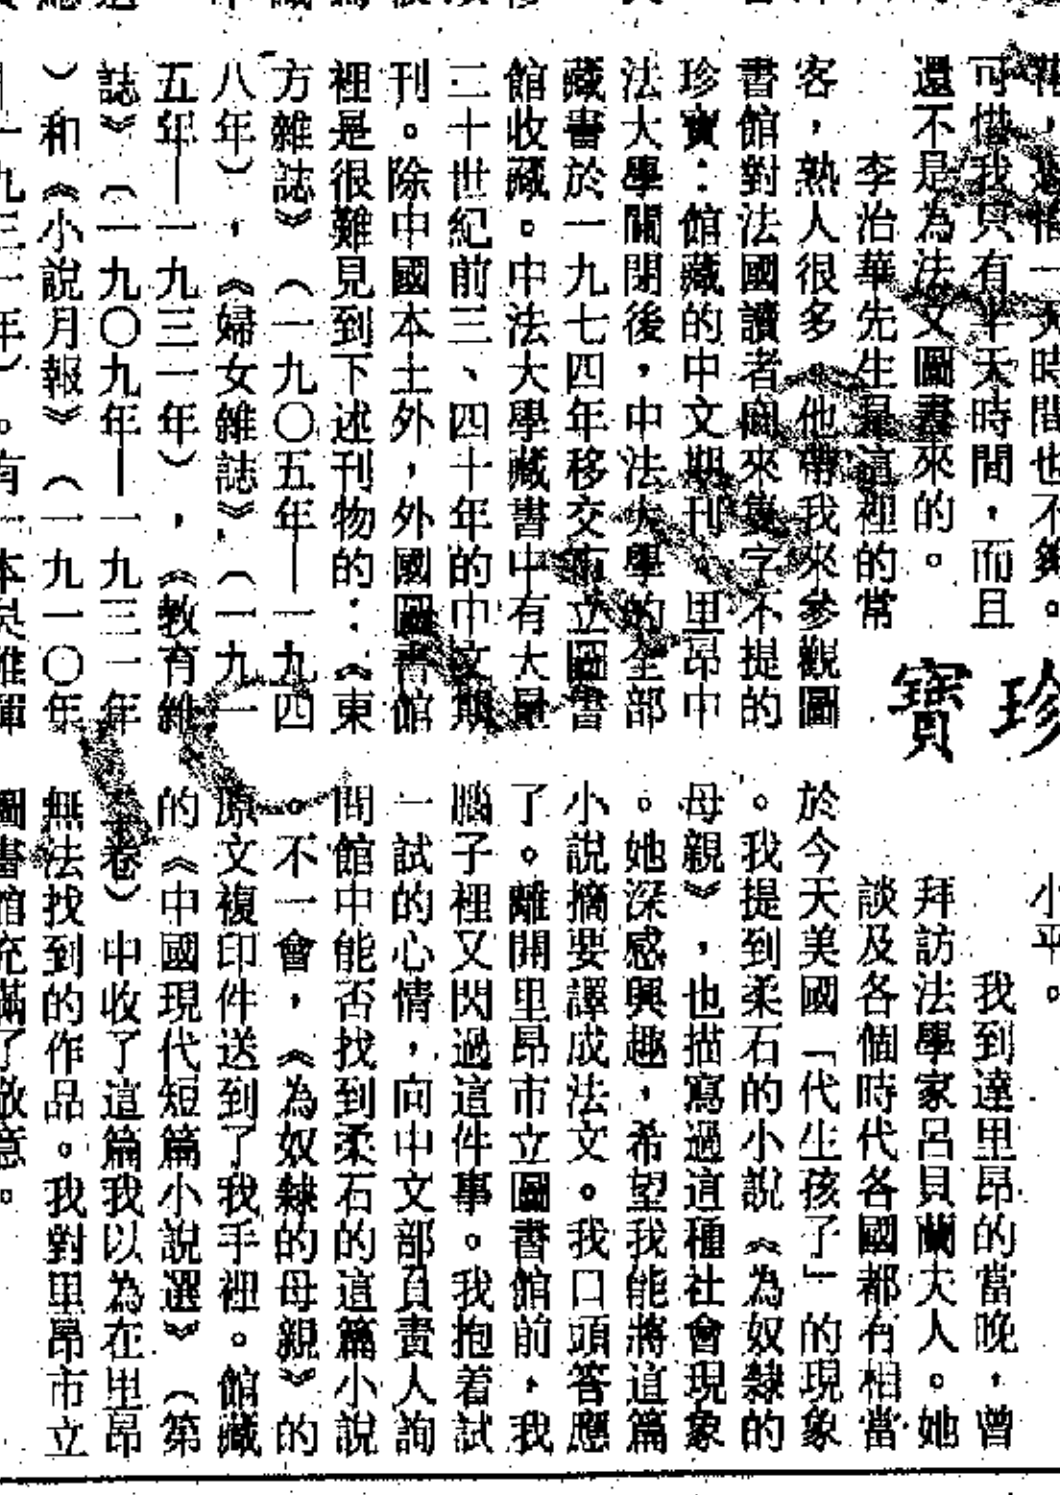 可惜我只有半天時間，而且
還不是為法文圖書來的。
李治華先生是這裡的常
客，熟人很多。他帶我來參觀圖
書館對法國讀者向來隻字不提的
珍寶：館藏的中文期刊。里昂中
法大學關閉後，中法大學的全部
藏書於一九七四年移交市立圖書
館收藏。中法大學藏書中有大量
二十世紀前三、四十年的中文期
刊。除中國本土外，外國圖書館
裡是很難見到下述刊物的：《東
方雜誌》（一九〇五年——一九四
八年），《婦女雜誌》（一九一
五年——一九三一年），《教育雜
誌》（一九〇九年——一九三一年
）和《小說月報》（一九一〇年
珍
寶
小平。
我到達里昂的當晚，曾
拜訪法學家呂貝蘭大人。她
談及各個時代各國都有相當
於今天美國「代生孩子」的現象
。我提到柔石的小說《為奴隸的
母親》，也描寫過這種社會現象
。她深感興趣，希望我能將這篇
小說摘要譯成法文。我口頭答應
了。離開里昂市立圖書館前，我
腦子裡又閃過這件事。我抱着試
一試的心情，向中文部負責人詢
問館中能否找到柔石的這篇小說
。不一會，《為奴隸的母親》的
原文複印件送到了我手裡。館藏
的《中國現代短篇小說選》（第
卷）中收了這篇我以為在里昂
無法找到的作品。我對里昂市立
圖書館充滿了敬意。